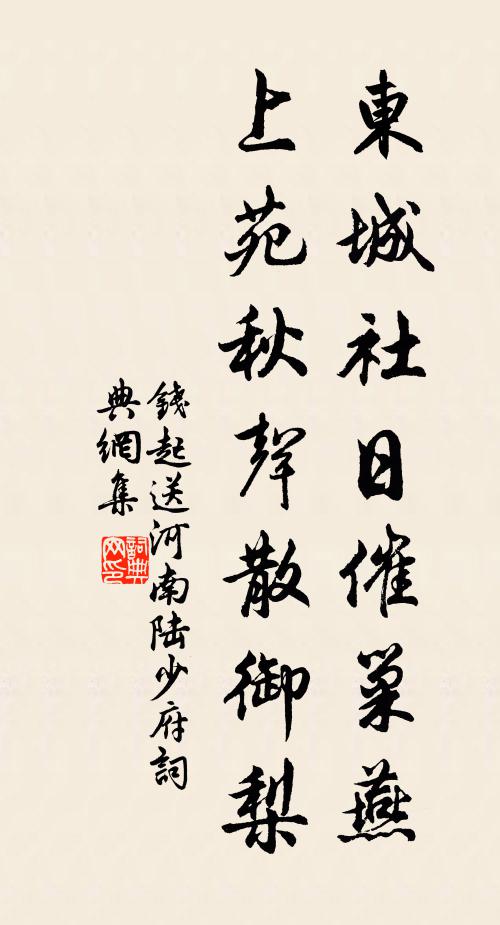 東城社日催巢燕
上苑秋聲散御梨
錢起送河南陆少府詞
典網集
詞典网印